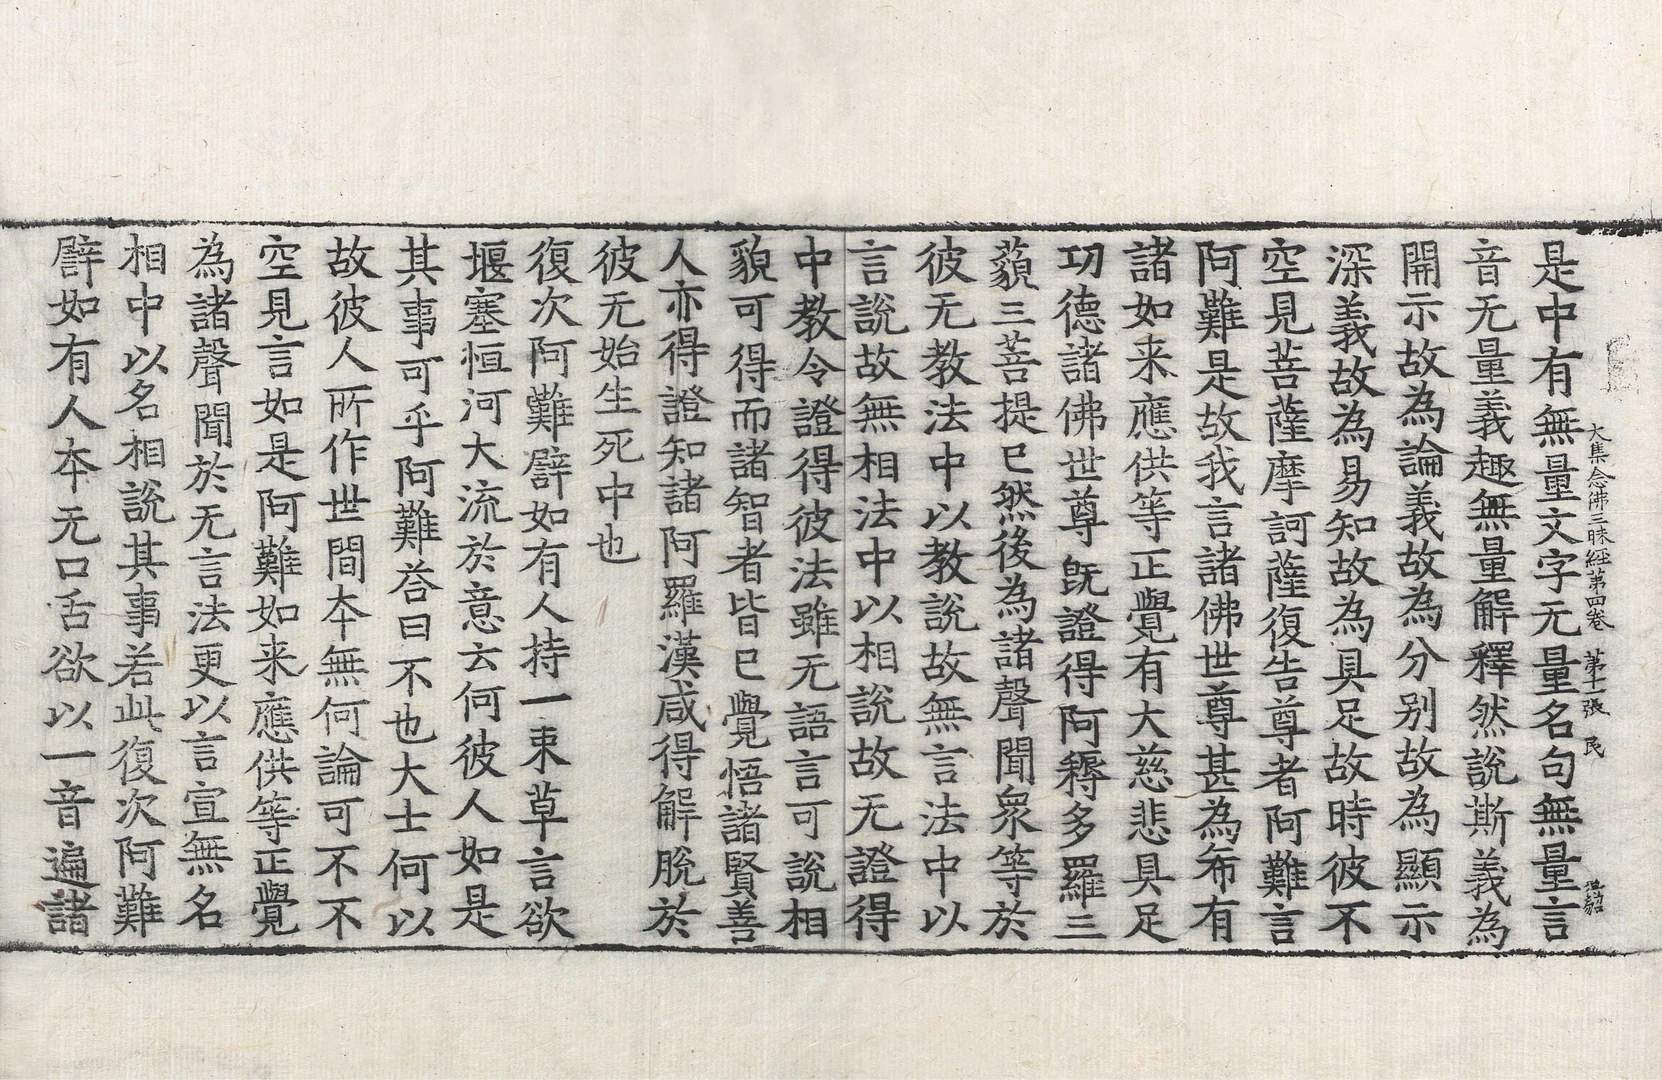 大集念佛三昧經第四卷　第十一張　民
是中有無量文字无量名句無量言
音无量義趣無量解釋然說斯義為
開示故為論義故為分別故為顯示
深義故為易知故為具足故時彼不
空見菩薩摩訶薩復告尊者阿難言
阿難是故我言諸佛世尊甚為希有
諸如来應供等正覺有大慈悲具足
功德諸佛世尊旣證得阿耨多羅三
藐三菩提已然後為諸聲聞衆等於
彼无教法中以教說故無言法中以
言說故無相法中以相說故无證得
中教令證得彼法雖无語言可說相
貌可得而諸智者皆已覺悟諸賢善
人亦得證知諸阿羅漢咸得解脫於
彼无始生死中也
復次阿難譬如有人持一束草言欲
堰塞恒河大流於意云何彼人如是
其事可乎阿難荅曰不也大士何以
故彼人所作世間夲無何論可不不
空見言如是阿難如来應供等正覺
為諸聲聞於无言法更以言宣無名
相中以名相說其事若此復次阿難
譬如有人夲无口舌欲以一音遍諸